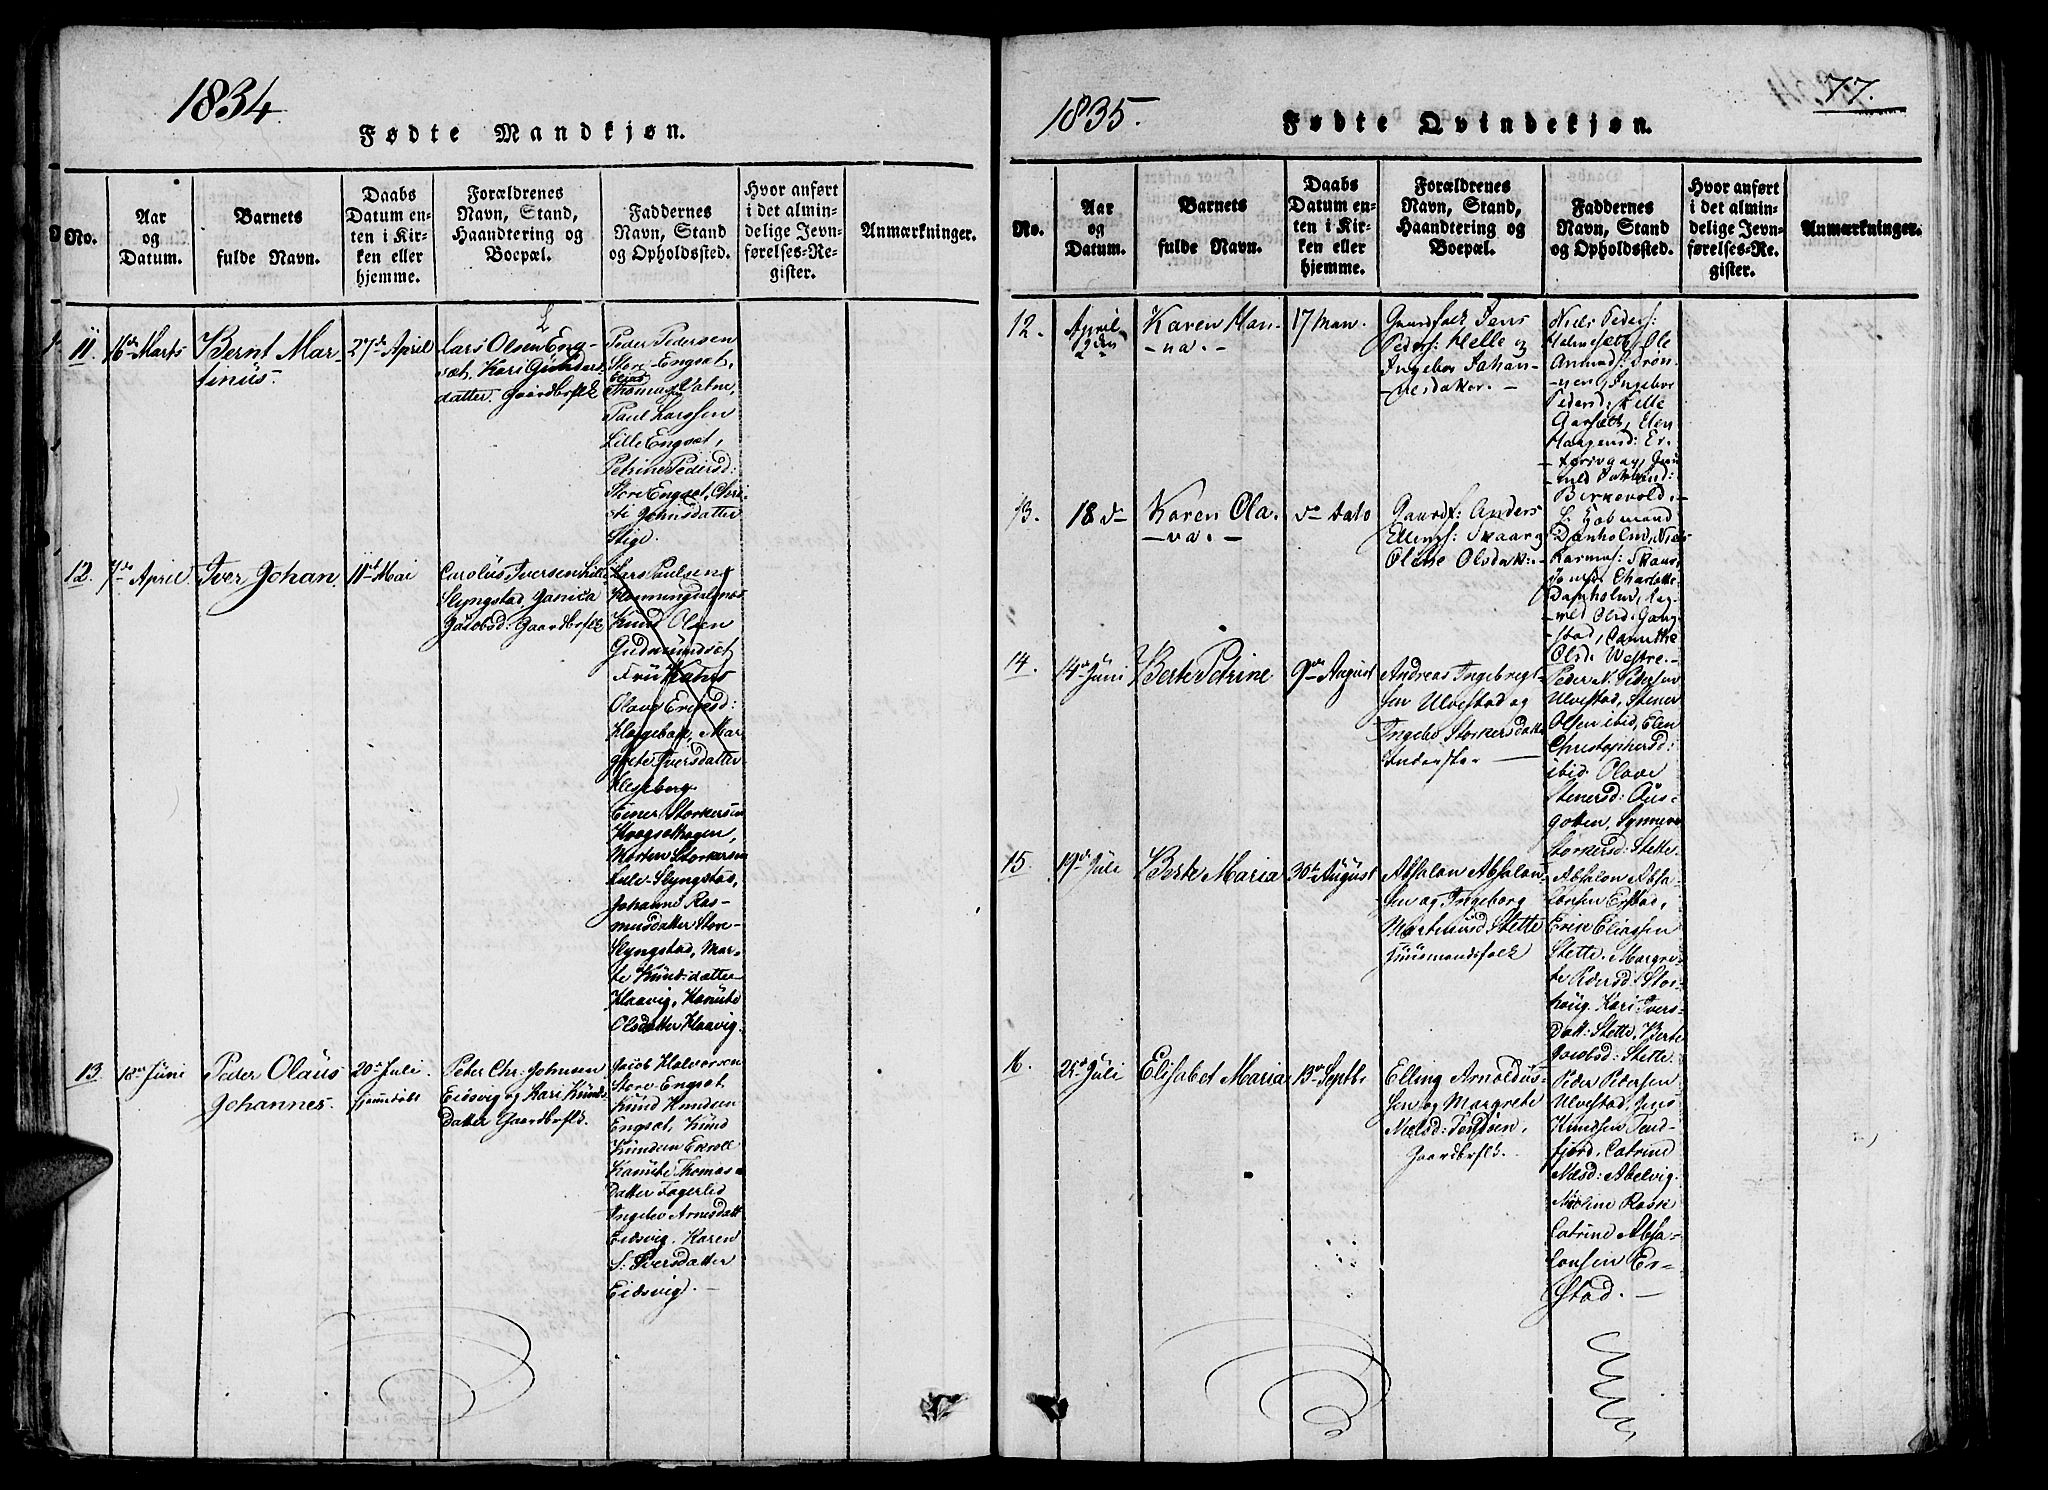 1834
Fødte Mandkjøn.
No.
Aar
og
Datum.
Barnets
fulde Navn.
Daabs
Datum en-
ten i Kir-
ken eller
hjemme.
Forældrenes
Navn, Stand,
Haandtering og
Boepæl.
Faddernes
Navn, Stand
og Opholdssted.
Hvor anført
i det almin-
delige Jevn-
førelses-Re-
gister.
Anmærkninger.
11.
16de Marts
Bernt Mar-
tinus.
27de April
Lars Olsen L Eng-
sæt, Kari
datter. Gaardbrflk
Peder Pedersen
Store-Engsæt,
Thomas Valen,
Paul Larssen
Lille Engsæt,
Petrine Pedersd:
Store Engsæt, Chri-
ti Johnsdatter
Slige.
12.
7de April
Iver Johan
11te Mai
Carolus Iversen Lille
Slyngstad, Janica
Jacobsd: Gaardbrflk
Lars Paulsen
Knud Olsen
Gudmundsæt
Olave Eriksd:
Mar-
grete Iversdatter
Einer Storkersen
Morten Storkersen
Lille-Slyngstad,
Johanne Ras-
musdatter Store-
Slyngstad, Mar-
te Knudsdatter
Klaavig, Kanute
Olsdatter Klaavig.
13
18de Juni
Peder Olaus
Johannes.
20de Juli.
hjemdøbt
Peter Chr: Johnsen
Eidsvig og Kari Knuds-
datter Gaardbrflk.
Jacob Halvorsen
Store Engsæt
Knud Knudsen
Engsæt, Knud
Knudsen
Kanute Thomas-
datter Fagerlid
Ingebor Arnesdatt
Eidsvig. Karen
S: Iversdatter
Eidsvig. —
1835.
77.
Fødte Qvindekjøn.
No.
Aar
og
Datum.
Barnets
fulde Navn.
Daabs
Datum en-
ten i Kir-
ken eller
hjemme.
Forældrenes
Navn, Stand,
Haandtering og
Boepæl.
Faddernes
Navn, Stand
og Opholdssted.
Hvor anført
i det almin-
delige Jevn-
førelses-Re-
gister.
Anmærkninger.
12.
April
2den
Karen Han-
-na. -
17 Man.
Gaardfolk Jens
Peders: Helle og
Ingebor Johan-
-nesdatter. -
Niels Peders:
Ole
Ingebor
Pedersd: Helle
Aarsæth, Elen
Haagensd:
Birkevold. -
13.
18 d-
Karen Ola-
va. -
do dato
Gaardf: Anders
Ellings: Skaar og
Oline Olsdatt: -
Danholm, Niels
Rasmus: Skaar,
Charlotte
Danholm,
Olsd: Westre. -
14.
14de Juni
Berte Petrine
9de August
Andreas Ingebrigt-
sen Ulvestad og
Ingebor Storkersdatter
—
Peder N. Pedersen
Ulvestad, Stener
Olsen ibid, Elen
Christophersd:
ibid Olave
Stenersd: Aus-
gotten, Synneve
Storkersd: Stette
15.
19de Juli
Berte Maria
30te August
Absalon Absalon-
sen og Ingeborg
Stette
Huusmandsfolk
Absalon Absa-
lonsen Erstad,
Erik Eliassen
Stette. Margre-
te Pedersd: Stor-
houg. Kari Ivers-
datt: Stette, Berte
Jacobsd: Stette
16.
25de Juli
Elisabet Maria
13de Septbr
Elling Arnoldus-
sen og Margrete
Nielsd: Tenfiøen,
Gaardbrflk. -
Peder Pedersen
Ulvestad, Jens
Knudsen Tend-
fjord, Catrine
Nilsd: Abelvig.
Catrine Absa-
lonsen Er-
stad. —